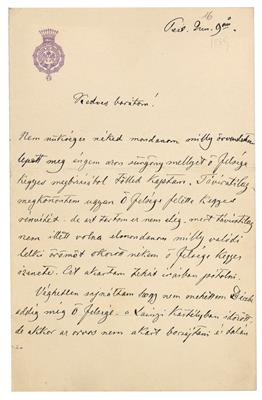 16
Pest. Jun. 9én
Kedves barátom!
Nem szükséges néked mondanom milly örvendetesen
lepett meg engem azon sürgöny mellyet ő Felsége
kegyes megbizásból Tőlled kaptam. Táviratilag
megköszöntem ugyan Ő Felsége feletti kegyes
de ezt tartom ez nem elég, mert táviratilag
nem illett volna elmondanom milly valódi
lelki örömöt okozott nekem ő Felsége kegyes
üzenete. Ezt akartam tehát irásban pótolni.
Véghetlen sajnáltam hogy nem mehettem Bécsbe
addig míg ő Felsége a Lainzi kastélyban időzött
de akkor az orvos nem akart bocsájtani és talán